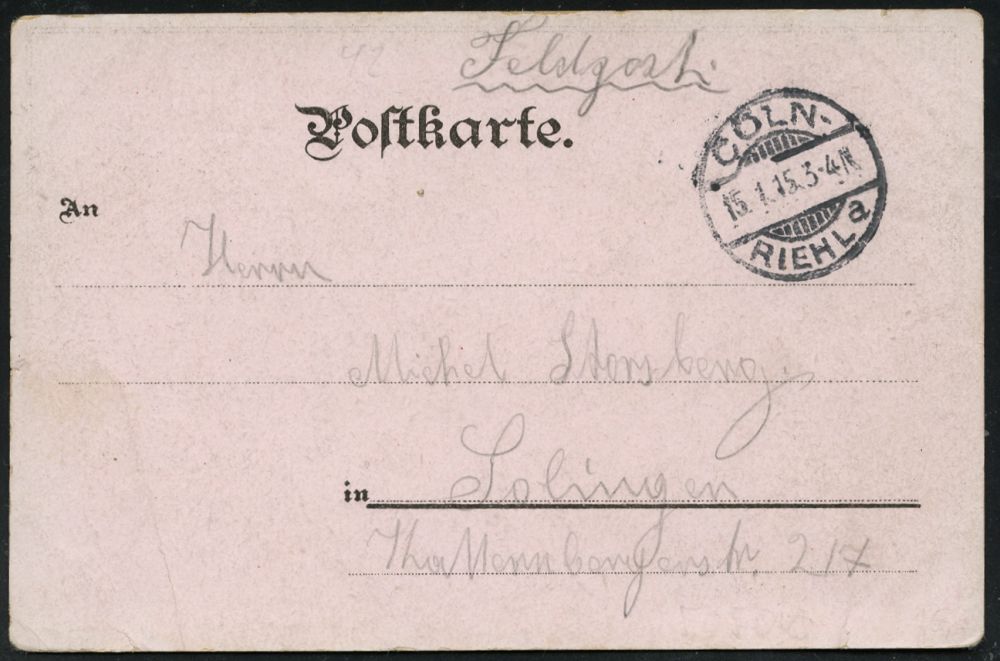 42
Feldpost.
Postkarte.
CÖLN-
15.1.15.3-4N
RIEHL a
An
Herrn
Michel Storsberg.
in Solingen
str. 217